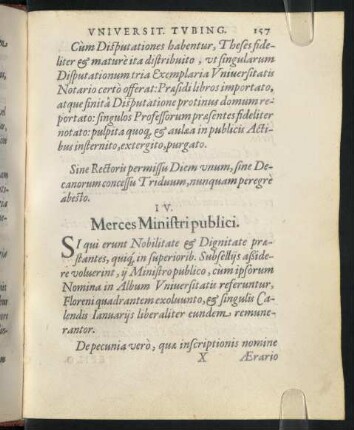 VNIVERSIT. TVBING. 157
Cùm Disputationes habentur, Theses fide-
liter & maturè ita distribuito, vt singularum
Disputationum tria Exemplaria Vniuersitatis
Notario certò offerat: Præsidi libros importato,
atque finitâ Disputatione protinus domum re-
portato: singulos Professorum præsentes fideliter
notato: pulpita quoq, & aulæa in publicis Acti-
bus insternito, extergito, purgato.
Sine Rectoris permissu Diem vnum, sine De-
canorum concessu Triduum, nunquam peregrè
abesto.
IV.
Merces Ministri publici.
SI qui erunt Nobilitate & Dignitate præ-
stantes, quiq, in superiorib. Subsellijs aßide-
re voluerint, ij Ministro publico, cum ipsorum
Nomina in Album Vniuersitatis referuntur,
Floreni quadrantem exoluunto, & singulis Ca-
lendis Ianuarijs liberaliter eundem remune-
rantor.
De pecunia verò, quæ inscriptionis nomine
X Ærario